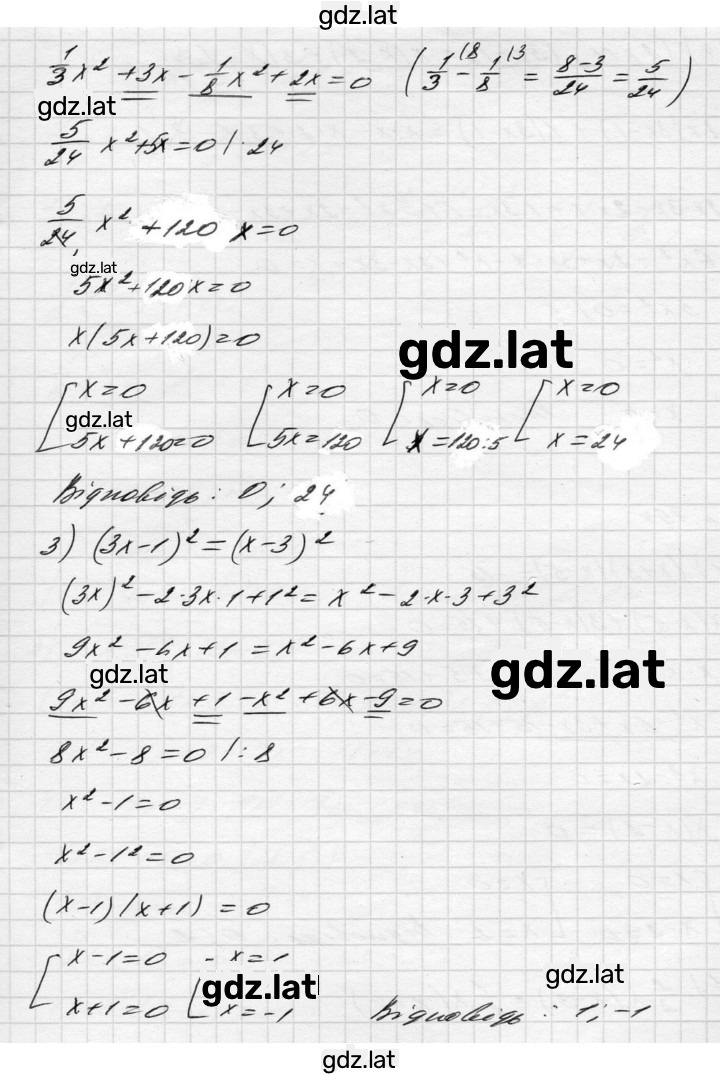 gdz.lat
1/3 x² + 3x - 1/8 x² + 2x = 0 (1/3 |8 - 1/8 |3 = 8-3/24 = 5/24)
gdz.lat
5/24 x² + 5x = 0 |· 24
5/24 x² + 120 x = 0
gdz.lat
5x² + 120x = 0
x(5x + 120) = 0
gdz.lat
[ x = 0 [ x = 0 [ x = 0 [ x = 0
gdz.lat
5x + 120 = 0 5x = 120 x = 120:5 x = 24
Відповідь: 0; 24
3) (3x-1)² = (x-3)²
(3x)² - 2·3x·1 + 1² = x² - 2·x·3 + 3²
9x² - 6x + 1 = x² - 6x + 9
gdz.lat
gdz.lat
9x² - 6x + 1 - x² + 6x - 9 = 0
8x² - 8 = 0 |: 8
x² - 1 = 0
x² - 1² = 0
(x-1)(x+1) = 0
[ x - 1 = 0 [ x = 1
gdz.lat
gdz.lat
x + 1 = 0 x = -1 Відповідь: 1; -1
gdz.lat